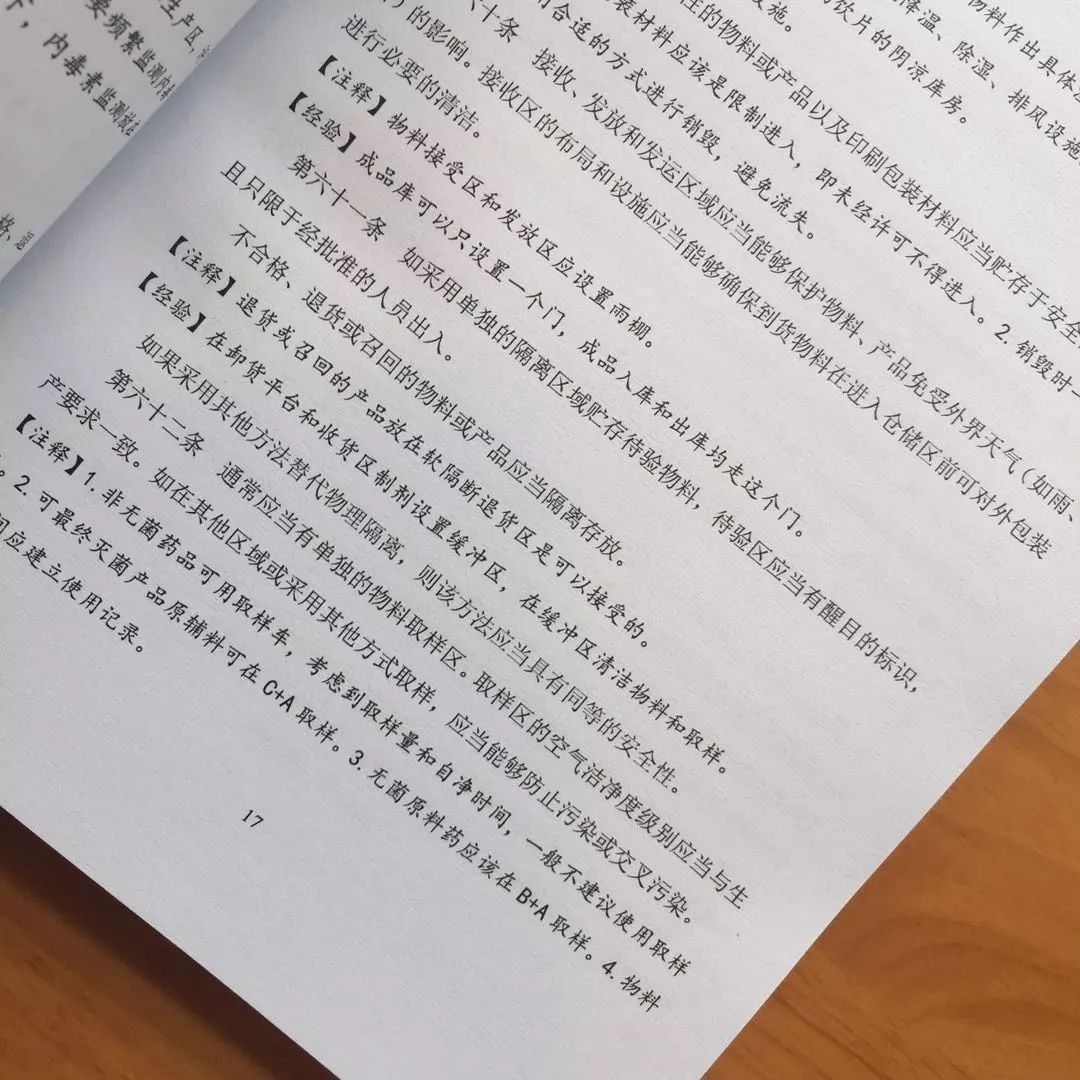 生产区,
要频繁监测内
内毒素监测放在
格、
物料作出具体
降温、除湿、排风设施
饮片的阴凉库房。
设施。
性的物料或产品以及印刷包装材料应当贮存于安全
装材料应该是限制进入,即未经许可不得进入。2.销毁时
合适的方式进行销毁,避免流失。
六十条 接收、发放和发运区域应当能够保护物料、产品免受外界天气(如雨、
)的影响。接收区的布局和设施应当能够确保到货物料在进入仓储区前可对外包装
进行必要的清洁。
【注释】物料接受区和发放区应设置雨棚。
【经验】成品库可以只设置一个门,成品入库和出库均走这个门。
第六十一条 如采用单独的隔离区域贮存待验物料,待验区应当有醒目的标识,
且只限于经批准的人员出入。
不合格、退货或召回的物料或产品应当隔离存放。
【注释】退货或召回的产品放在软隔断退货区是可以接受的。
【经验】在卸货平台和收货区制剂设置缓冲区,在缓冲区清洁物料和取样。
如果采用其他方法替代物理隔离,则该方法应当具有同等的安全性。
第六十二条 通常应当有单独的物料取样区。取样区的空气洁净度级别应当与生
产要求一致。如在其他区域或采用其他方式取样,应当能够防止污染或交叉污染。
【注释】1.非无菌药品可用取样车,考虑到取样量和自净时间,一般不建议使用取样
。2.可最终灭菌产品原辅料可在C+A取样。3.无菌原料药应该在B+A取样。4.物料
应建立使用记录。
17